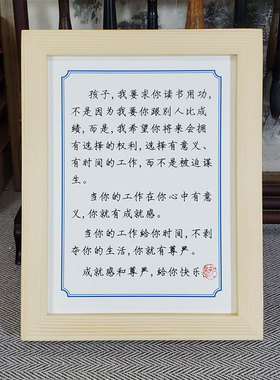 孩子,我要求你读书用功,
不是因为我要你跟别人比成
绩,而是,我希望你将来会拥
有选择的权利,选择有意义、
有时间的工作,而不是被迫谋
生。
当你的工作在你心中有意
义,你就有成就感。
当你的工作给你时间,不剥
夺你的生活,你就有尊严。
成就感和尊严,给你快乐